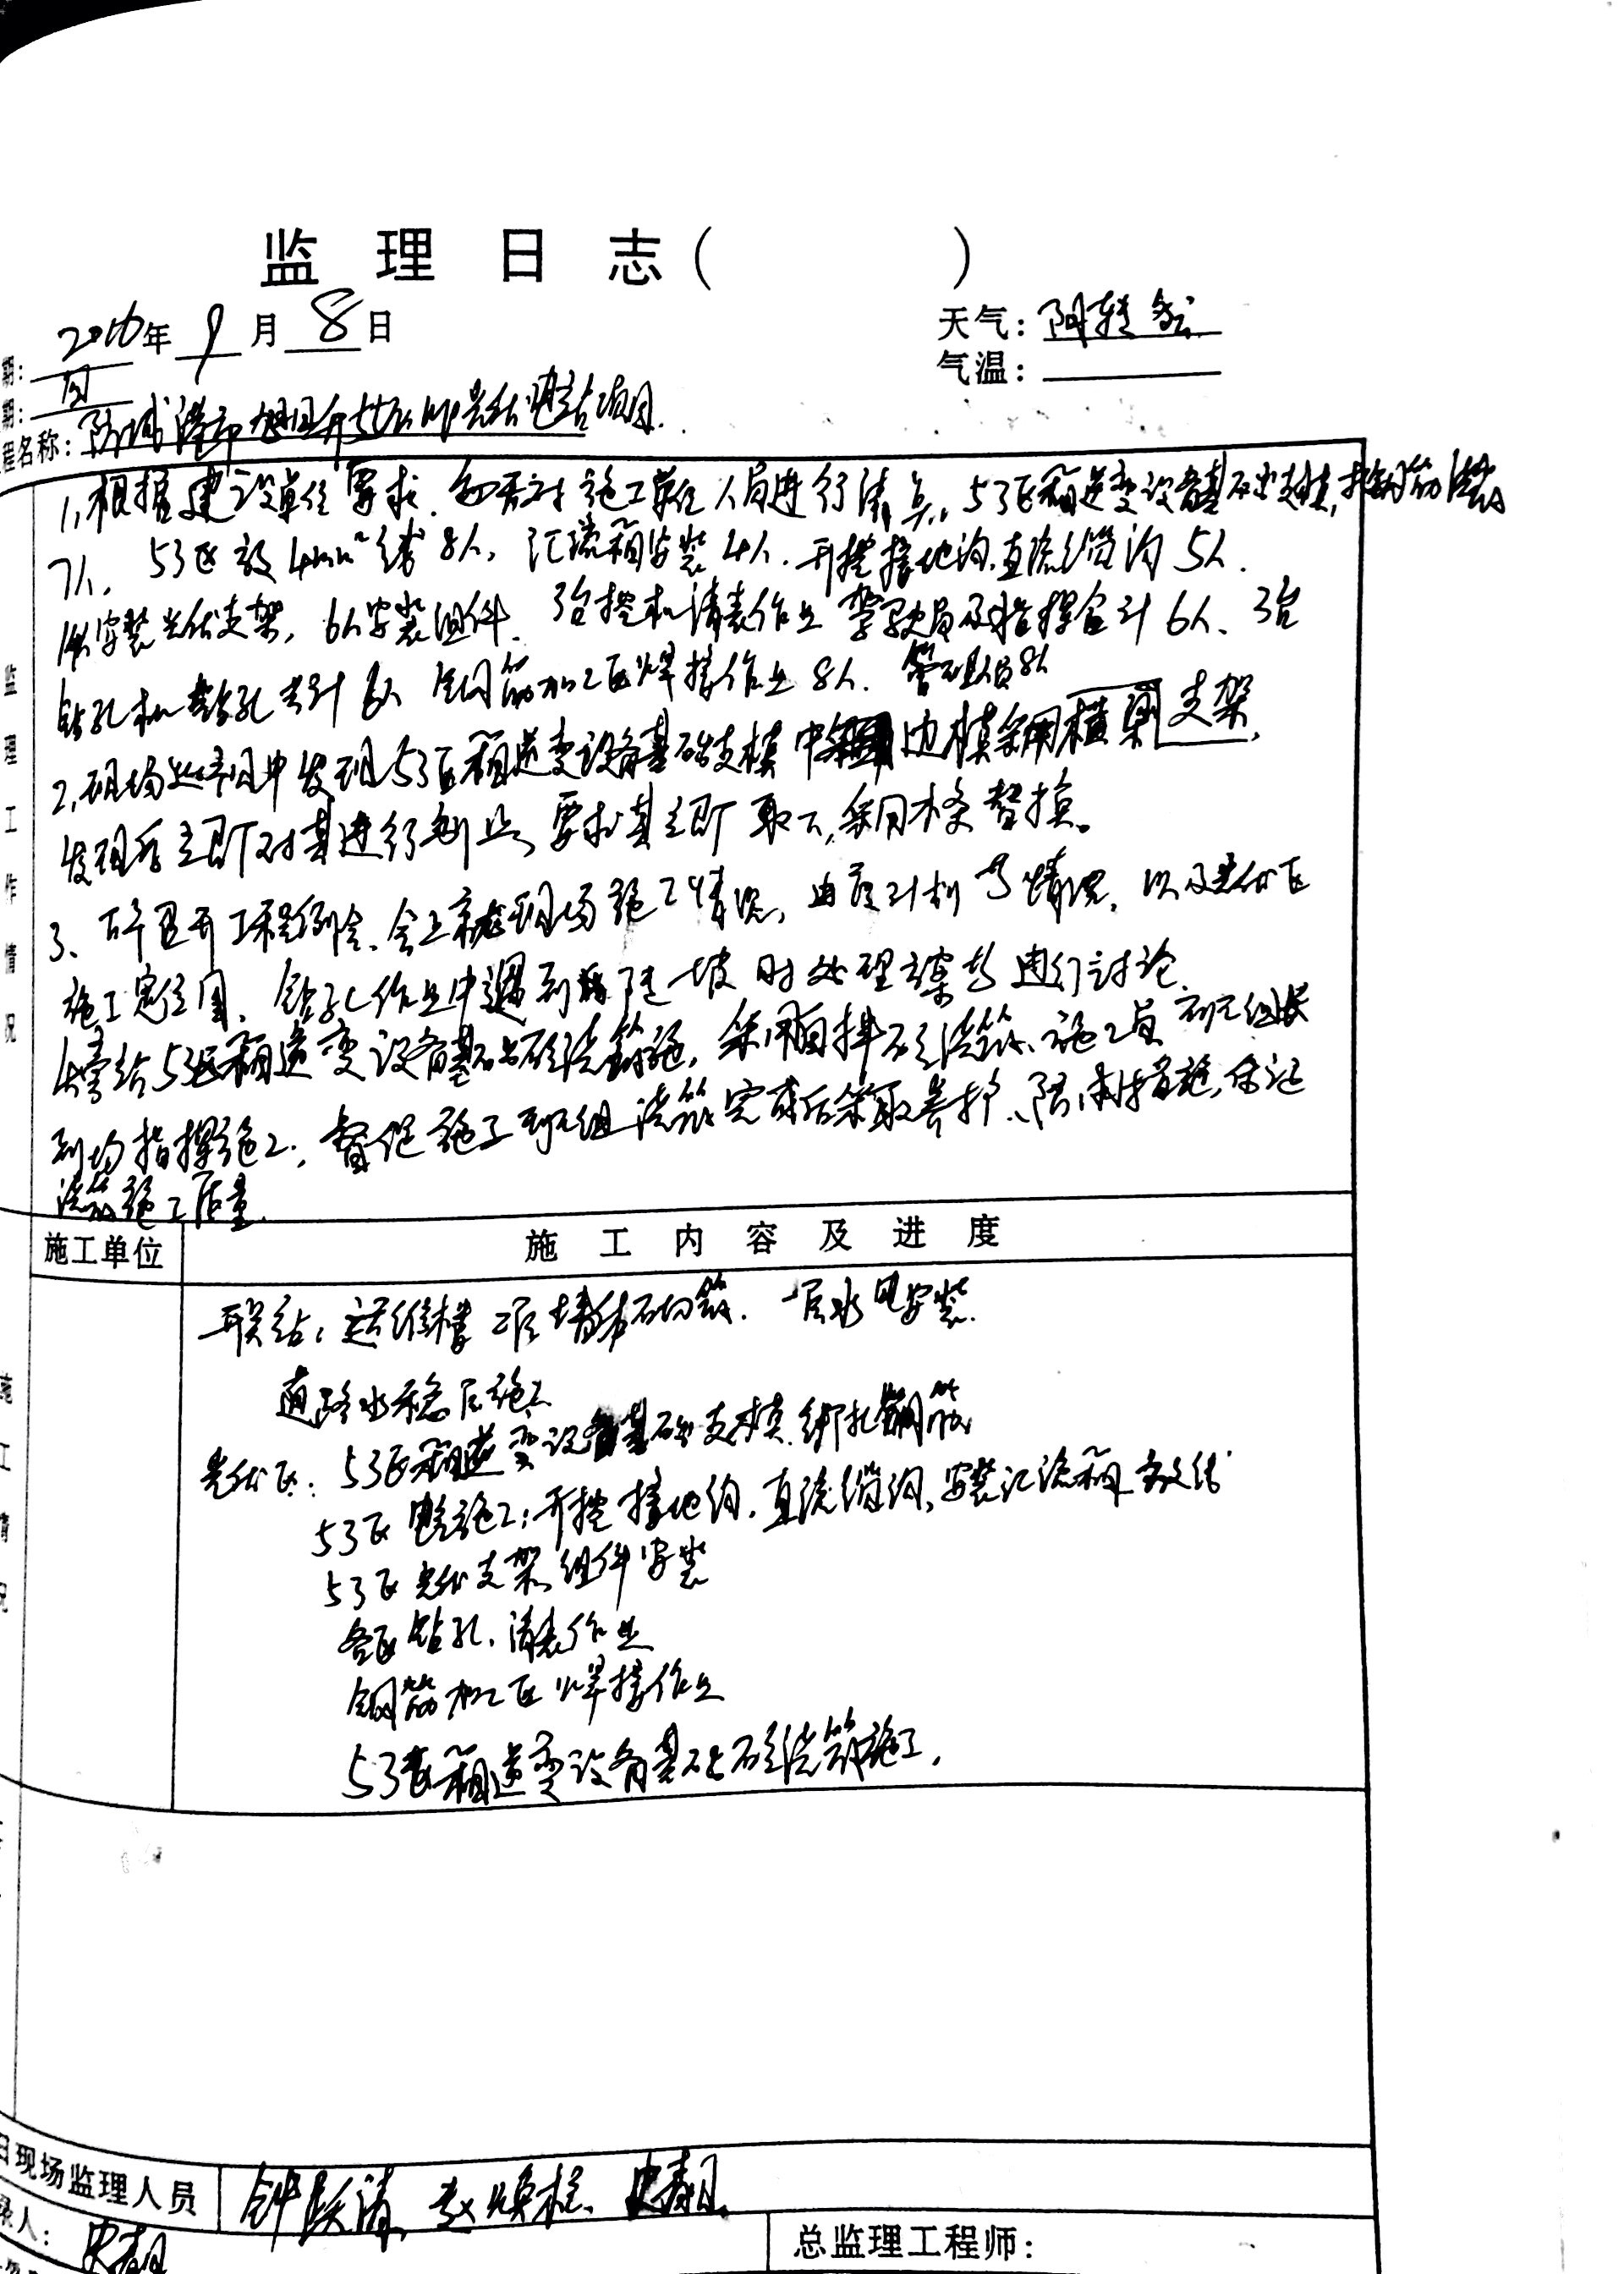 监理日志（ ）
期： 年 9 月 8 日
天气：阴转多云
期：四
气温：
程名称：防城港市 光伏电站项目.
1、根据建设单位要求、 对施工单位人员进行清点、53区箱逆变设备基础支模，扎钢筋
7人、53区放4mm²线8人，汇流箱安装4人.开挖接地沟、直流缆沟5人.
安装光伏支架，6人安装组件、3台挖机清表作业 驾驶员及指挥合计6人、3台
钻孔机钻孔共计 钢筋加工区焊接作业8人. 管理人员8人
2、现场 中发现53区箱逆变设备基础支模中 边模采用横梁支架，
发现后立即对其进行制止，要求其立即取下，采用木条替换。
3、下午召开工程例会、会上就现场施工情况， 情况，以及光伏区
施工 钻孔作业中遇到 陡坡时处理方案与进行讨论.
4、 53区箱逆变设备基础砼浇筑施，采用自拌砼浇筑、施工员 班组长
到场指挥施工，督促施工班组浇筑完成后采取养护、防 措施，保证
浇筑施工质量.
监理工作情况
施工单位
施工内容及进度
升压站：运维楼二层墙体砌筑. 一层水电安装.
道路水稳层施工
光伏区：53区箱逆变设备基础支模.绑扎钢筋
53区电气施工：开挖接地沟，直流缆沟，安装汇流箱 放线
53区光伏支架、组件安装
各区钻孔、清表作业
钢筋加工区焊接作业
53区箱逆变设备基础砼浇筑施工，
施工情况
日现场监理人员
钟 清、赵焕 、史春
录人：史春
总监理工程师：